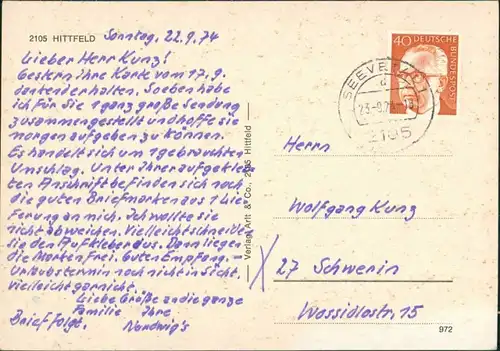 2105 HITTFELD
Sonntag, 22.9.74
Lieber Herr Kunz!
Gestern ihre Karte vom 17.9.
dankend erhalten. Soeben habe
ich für Sie 1 ganz große Sendung
zusammengestellt und hoffe sie
morgen aufgeben zu können.
Es handelt sich um 1 gebrauchten
Umschlag. Unter Ihrer aufgekleb-
ten Anschrift befinden sich noch
die guten Briefmarken aus 1 Lie-
ferung an mich. Ich wollte sie
nicht abweichen. Vielleicht schneiden
sie den Aufkleber aus. Dann liegen
die Marken frei. Guten Empfang. –
Urlaubstermin noch nicht in Sicht,
vielleicht garnicht.
Liebe Grüße an die ganze
Familie Ihre
Brief folgt. Nordwig's
Verlag Arlt & Co., 2105 Hittfeld
40 DEUTSCHE
BUNDESPOST
SEEVETAL
d
23.-9.74
2105
Herrn
Wolfgang Kunz
27 Schwerin
Wossidlostr. 15
972